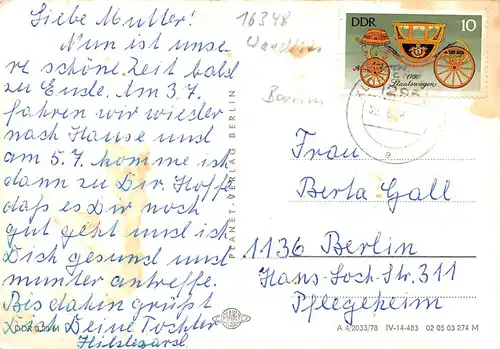 Liebe Mutter!
Nun ist unse
re schöne Zeit bald
zu Ende. Am 3.7.
fahren wir wieder
nach Hause und
am 5.7. komme ich
dann zu Dir. Hoffe
daß es Dir noch
gut geht und ich
Dich gesund und
munter antreffe.
Bis dahin grüßt
Dich Deine Tochter
16348
Wandlitz
Barnim
DDR
10
1790
Staatswagen
PLANET-VERLAG BERLIN
Frau
Berta Gall
1136 Berlin
Hans-Loch-Str. 311
Pflegeheim
PLANET
A 4/2033/78 IV-14-483 02 05 03 274 M